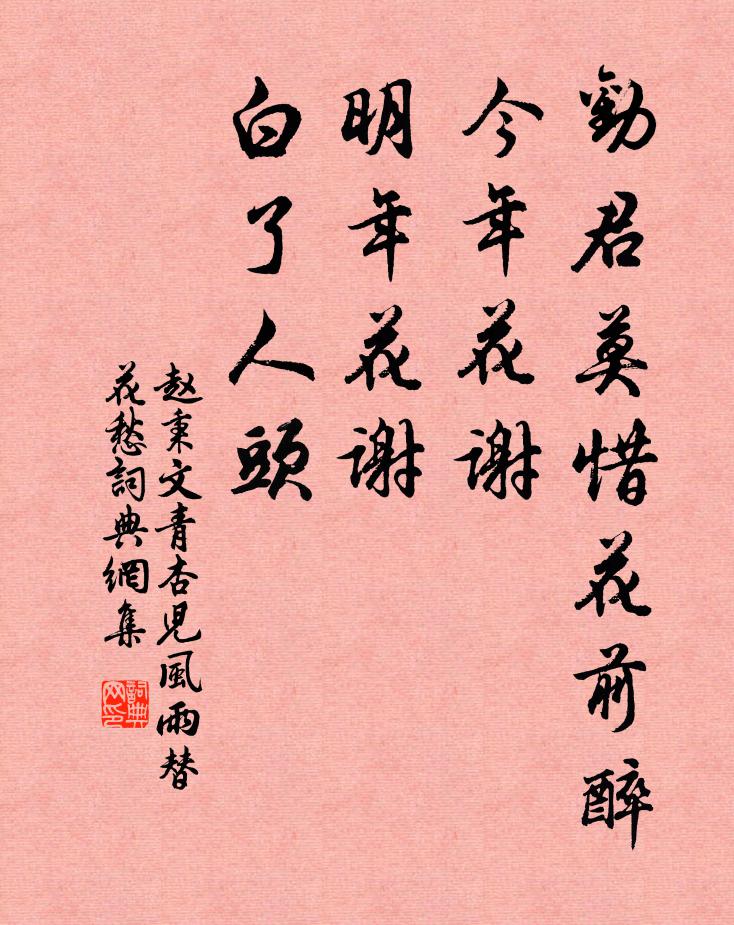 勸君莫惜花前醉
今年花謝
明年花謝
白了人頭
赵秉文青杏児風雨替
花愁詞典網集
詞典网印